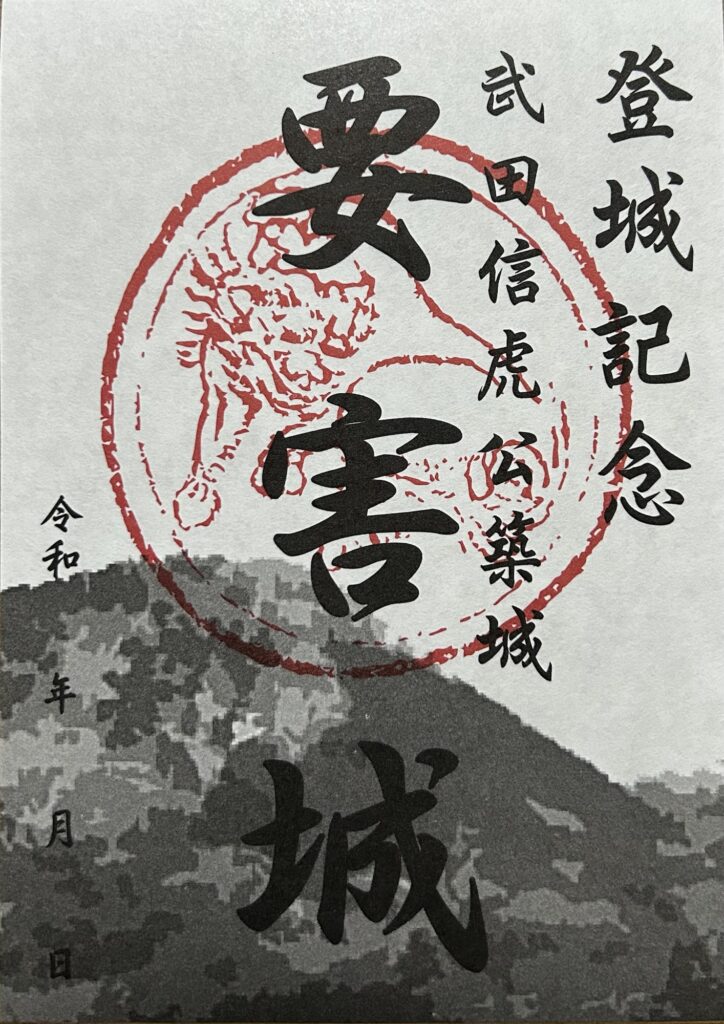 登城記念
武田信虎公築城
要害城
令和 年 月 日